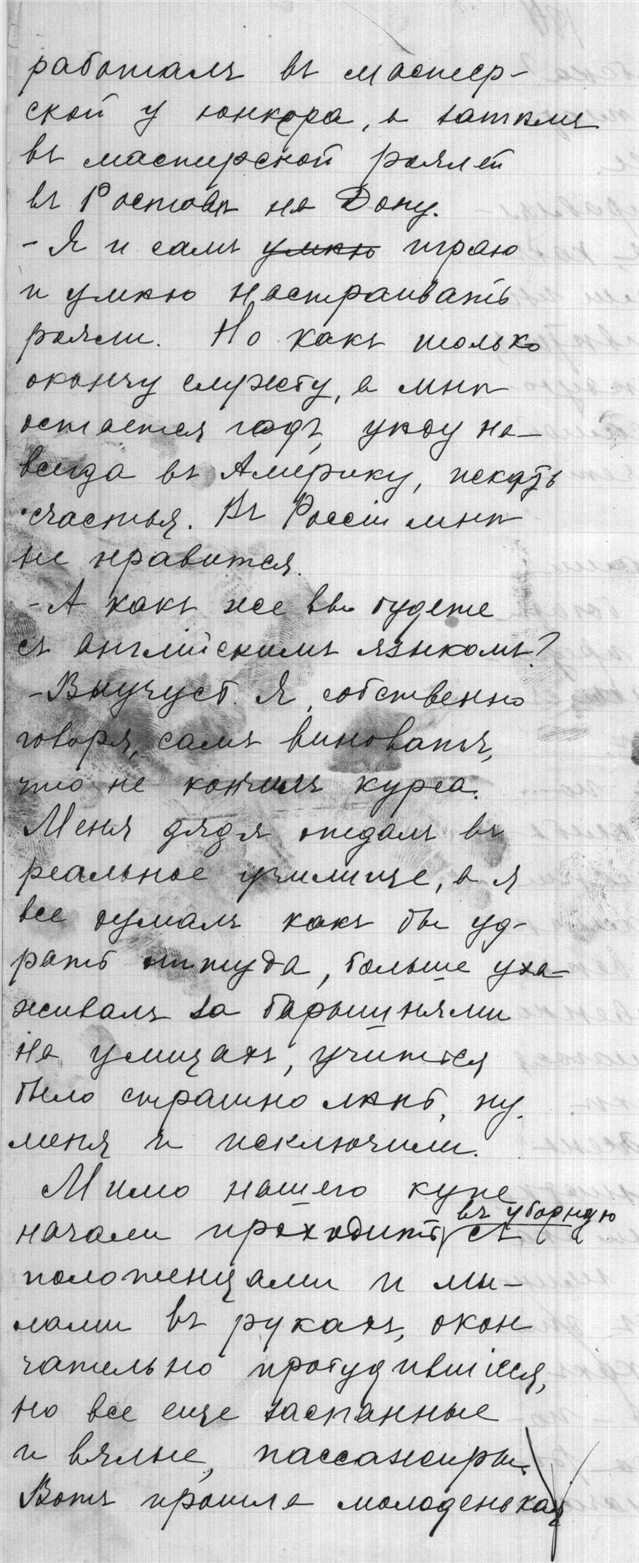 работалъ въ мастер-
ской у юнкера, а затѣмъ
въ мастерской роялей
въ Ростовѣ на Дону.
- Я и самъ умѣю играю
и умѣю настраивать
рояли. Но какъ только
окончу службу, а мнѣ
остается годъ, уѣду на-
всегда въ Америку, искать
счастья. Въ Россіи мнѣ
не нравится.
- А какъ же вы будете
съ англійскимъ языкомъ?
- Выучусь. Я, собственно
говоря, самъ виноватъ,
что не кончилъ курса.
Меня дядя отдалъ въ
реальное училище, а я
все думалъ какъ бы уд-
рать оттуда, больше уха-
живалъ за барышнями
на улицахъ, учиться
было страшно лѣнь, ну
меня и исключили.
Мимо нашего купе
начали проходить въ уборную съ
полотенцами и мы-
лами въ рукахъ, окон
чательно пробудившіеся,
но все еще заспанные
и вялые, пассажиры.
Вотъ прошла молоденькая